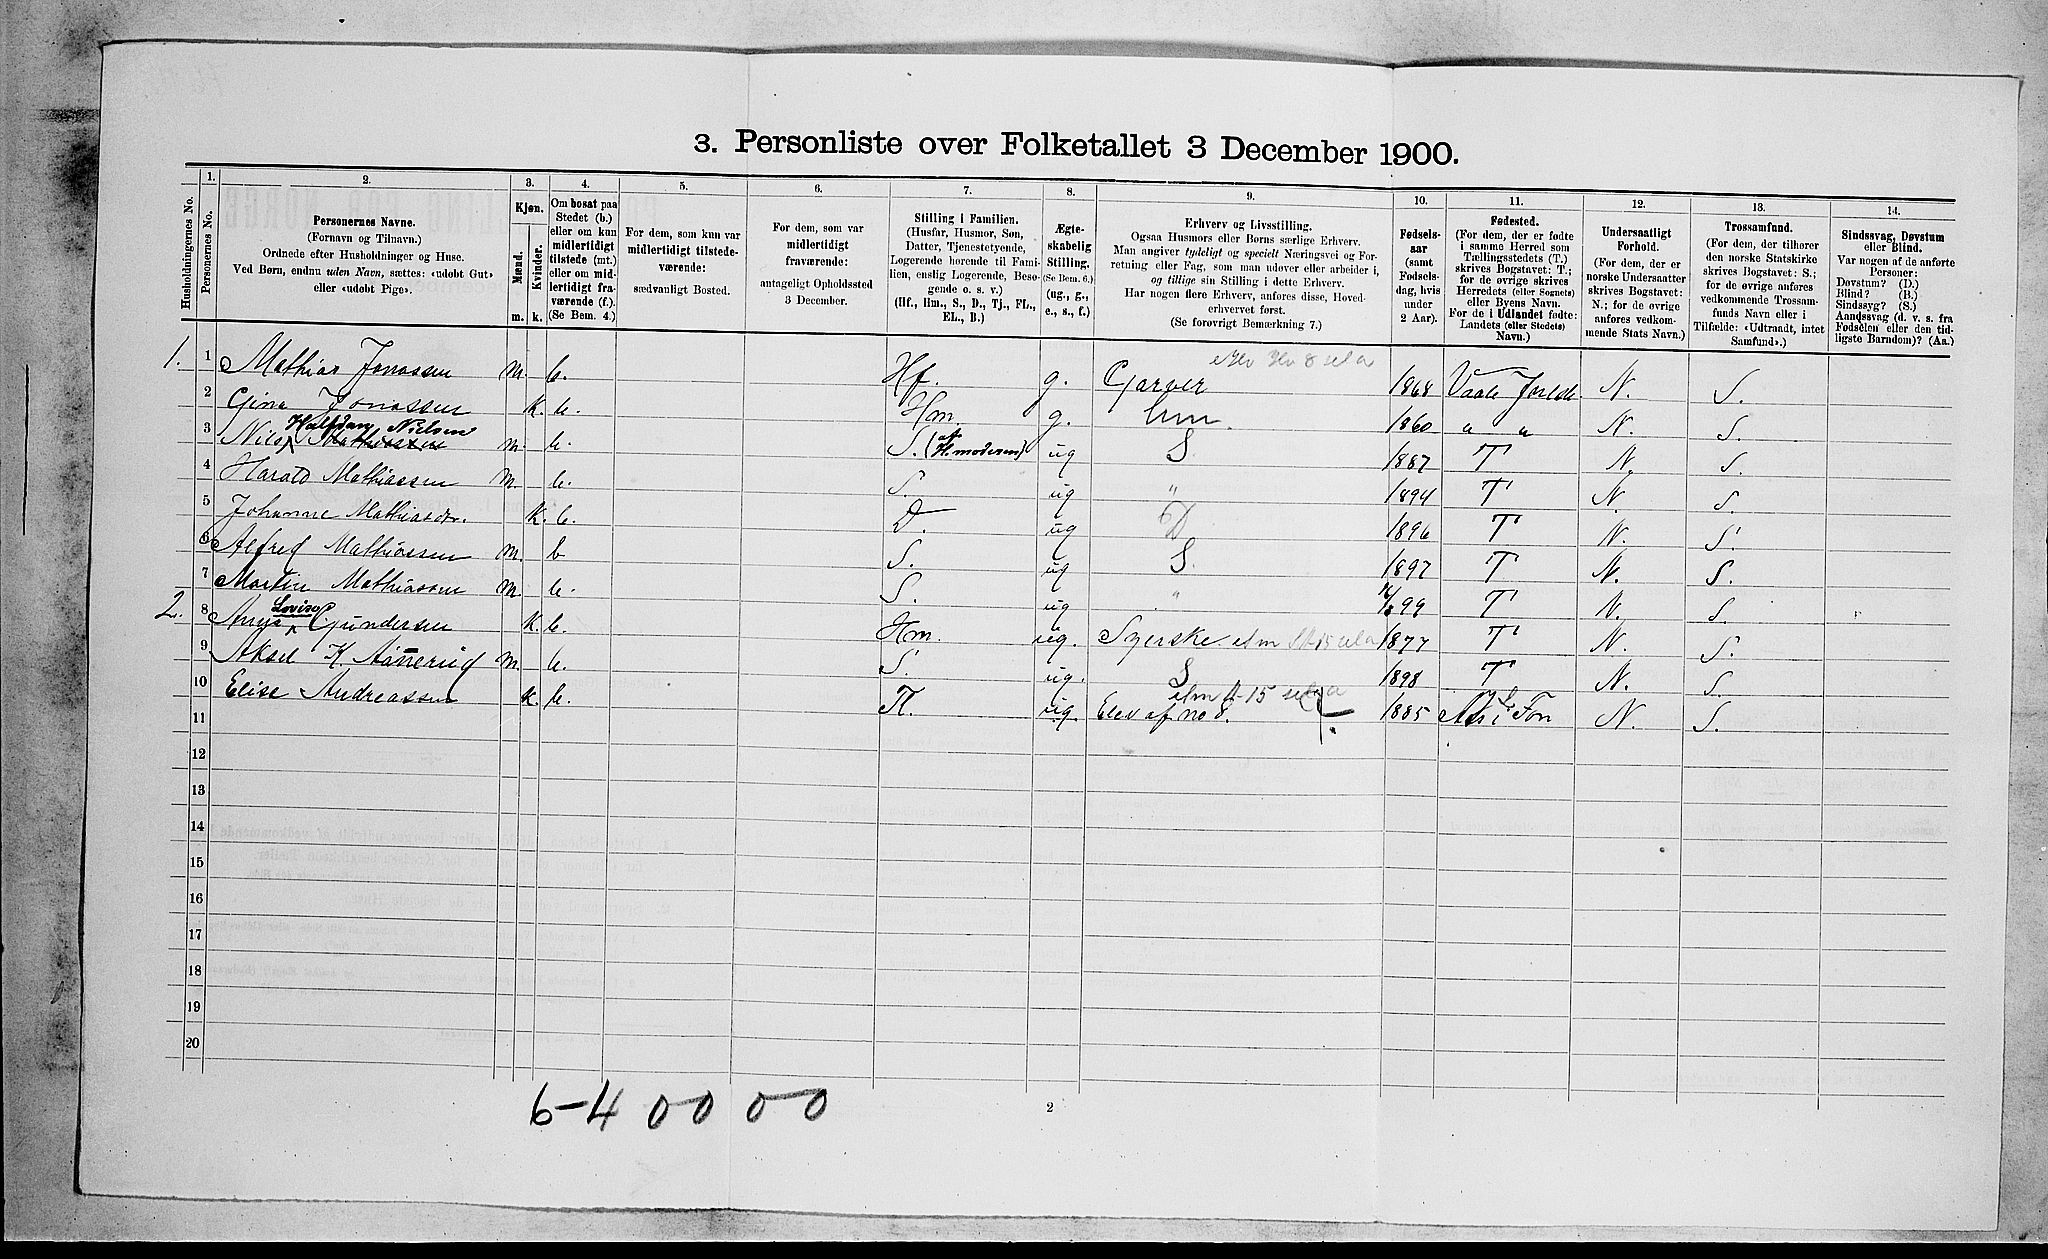 3. Personliste over Folketallet 3 December 1900.
Husholdningernes No.
1.
Personernes No.
2.
Personernes Navne.
(Fornavn og Tilnavn.)
Ordnede efter Husholdninger og Huse.
Ved Børn, endnu uden Navn, sættes: «udøbt Gut»
eller «udøbt Pige».
3.
Kjøn.
Mænd.
Kvinder.
m. k.
4.
Om bosat paa
Stedet (b.)
eller om kun
midlertidigt
tilstede (mt.)
eller om mid-
lertidigt fra-
værende (f.)
(Se Bem. 4.)
5.
For dem, som kun var
midlertidigt tilstede-
værende:
sædvanligt Bosted.
6.
For dem, som var
midlertidigt
fraværende:
antageligt Opholdssted
3 December.
7.
Stilling i Familien.
(Husfar, Husmor, Søn,
Datter, Tjenestetyende,
Logerende hørende til Fami-
lien, enslig Logerende, Besø-
gende o. s. v.)
(Hf., Hm., S., D., Tj., FL.,
EL., B.)
8.
Ægte-
skabelig
Stilling.
(Se Bem. 6.)
(ug., g.,
e., s., f.)
9.
Erhverv og Livsstilling.
Ogsaa Husmors eller Børns særlige Erhverv.
Man angiver tydeligt og specielt Næringsvei og For-
retning eller Fag, som man udøver eller arbeider i,
og tillige sin Stilling i dette Erhverv.
Har nogen flere Erhverv, anføres disse, Hoved-
erhvervet først.
(Se forøvrigt Bemærkning 7.)
10.
Fødsels-
aar
(samt
Fødsels-
dag, hvis
under
2 Aar).
11.
Fødested.
(For dem, der er fødte
i samme Herred som
Tællingsstedets (T.)
skrives Bogstavet: T.;
for de øvrige skrives
Herredets (eller Sognets)
eller Byens Navn.
For de i Udlandet fødte:
Landets (eller Stedets)
Navn.)
12.
Undersaatligt
Forhold.
(For dem, der er
norske Undersaatter
skrives Bogstavet:
N.; for de øvrige
anføres vedkom-
mende Stats Navn.)
13.
Trossamfund.
(For dem, der tilhører
den norske Statskirke
skrives Bogstavet: S.;
for de øvrige anføres
vedkommende Trossam-
funds Navn eller i
Tilfælde: «Udtraadt, intet
Samfund».)
14.
Sindssvag, Døvstum
eller Blind.
Var nogen af de anførte
Personer:
Døvstum? (D.)
Blind? (B.)
Sindssyg? (S.)
Aandssvag (d. v. s. fra
Fødselen eller den tid-
ligste Barndom)? (Aa.)
1. 1 Mathias Jonassen m. b. Hf. g. Garver 1868 Vaale N. S.
2 Gina Jonassen k. b. Hm. g. 1860 " " N. S.
Halfdan Nielsen
3 Nils Mathiassen m. b. S. (af H. moderen) ug S 1887 T N. S.
4 Harald Mathiassen m. b. S. ug " 1894 T N. S.
5 Johanne Mathiasdtr. k. b. D. ug D 1896 T N. S.
6 Alfred Mathiassen m. b S. ug S. 1897 T N. S.
7 Martin Mathiassen m. b. S. ug " 99 T N. S.
Lovise
2. 8 Anna Gundersen k. b. Hm. ug. Syerske 1877 T N. S.
9 Aksel K. Aannerud m. b. S. ug. S 1898 T N. S.
10 Elise Andreassen k. b. ug. Elev af no 8. 1885 N. S.
11
12
13
14
15
16
17
18
19
20
6-4 00 0-0
2